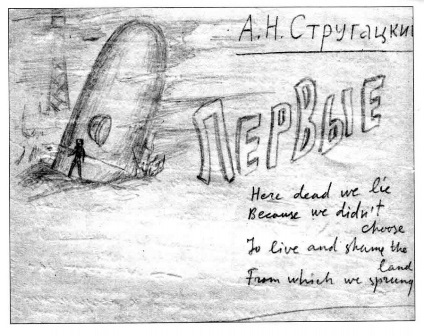 А.Н. Стругацкий
Первые
Here dead we lie
Because we didn't
choose
To live and shame the
land
From which we sprung